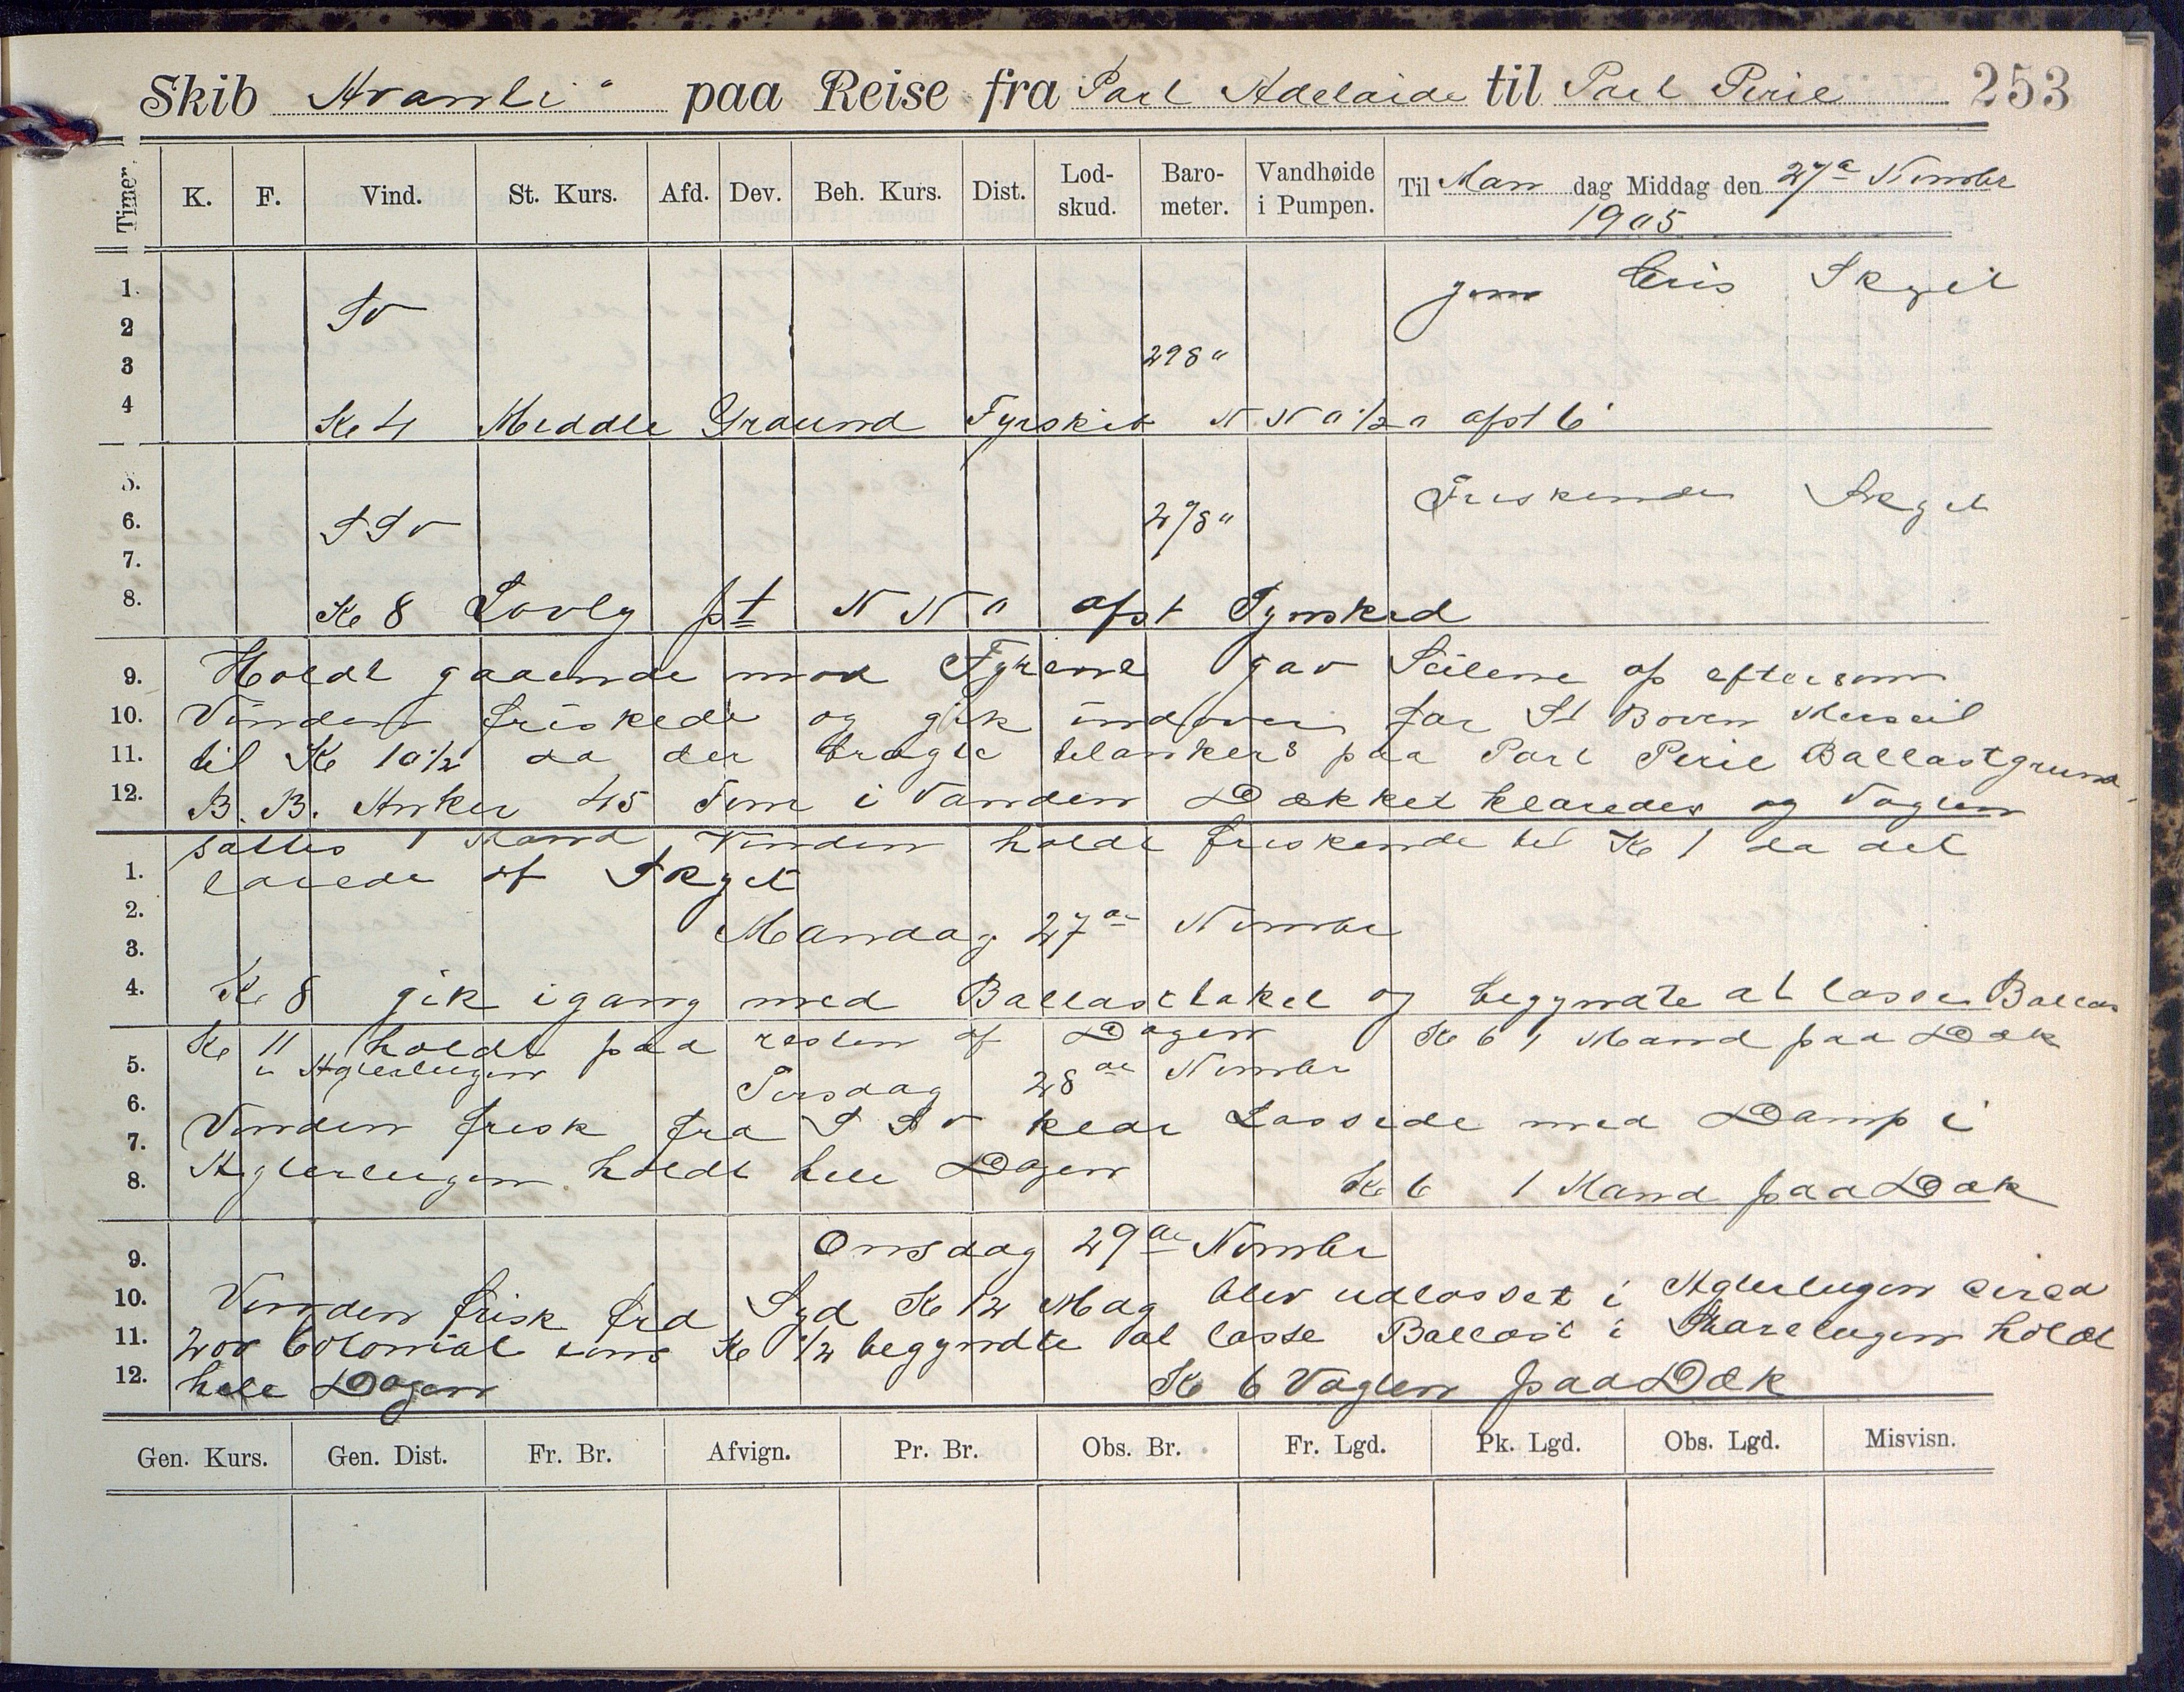 Skib paa Reise fra Port Adelaide til Port Pirie 253
Timer. K. F. Vind. St. Kurs. Afd. Dev. Beh. Kurs. Dist. Lod-skud. Baro-meter. Vandhøide i Pumpen. Til Man dag Middag den 27de Novmbr 1905
1. jevn Bris Skyet
2 Sv
3 2980
4 Kl 4 Middle Ground Fyrskib N N O 1/2 O afst 6'
5. Friskende Skyet
6. SSv 2980
7.
8. Kl 8 Lovly pt N N O afst
9. Holdt gaaende mod Fyrene gav Seilene op eftersom
10. Vinden friskede og gik indover for St Boven Merseil
11. til Kl 10 1/2 da der bragte tilankers paa Port Pirie Ballastgrund
12. B. B. Anker 45 i Vanden Dækket klaredes og Vagten
sattes 1 Mand Vinden holdt friskende til Kl 1 da det
1. Skyet
2. Mandag 27de Novmbr
3.
4. Kl 8 gik igang med Ballasttakel og begyndte at losse Ballas
Kl 11 holdt paa resten af Dagen Kl 6 1 Mand paa Dæk
5. i Agterlugen
Tirsdag 28de Novmbr
6.
7. Vinden frisk fra S S v klar Lossede med Damp i
8. Agterlugen holdt hele Dagen Kl 6 1 Mand paa Dæk
9. Onsdag 29de Novmbr
10. Vinden frisk fra Syd Kl 12 Mdg blev udlosset i Agterlugen circa
11. 200 Colonial tons Kl 1/2 begyndte at losse Ballast i Storelugen holdt
12. hele Dagen Kl 6 Vagten paa Dæk
Gen. Kurs. Gen. Dist. Fr. Br. Afvign. Pr. Br. Obs. Br. Fr. Lgd. Pk. Lgd. Obs. Lgd. Misvisn.